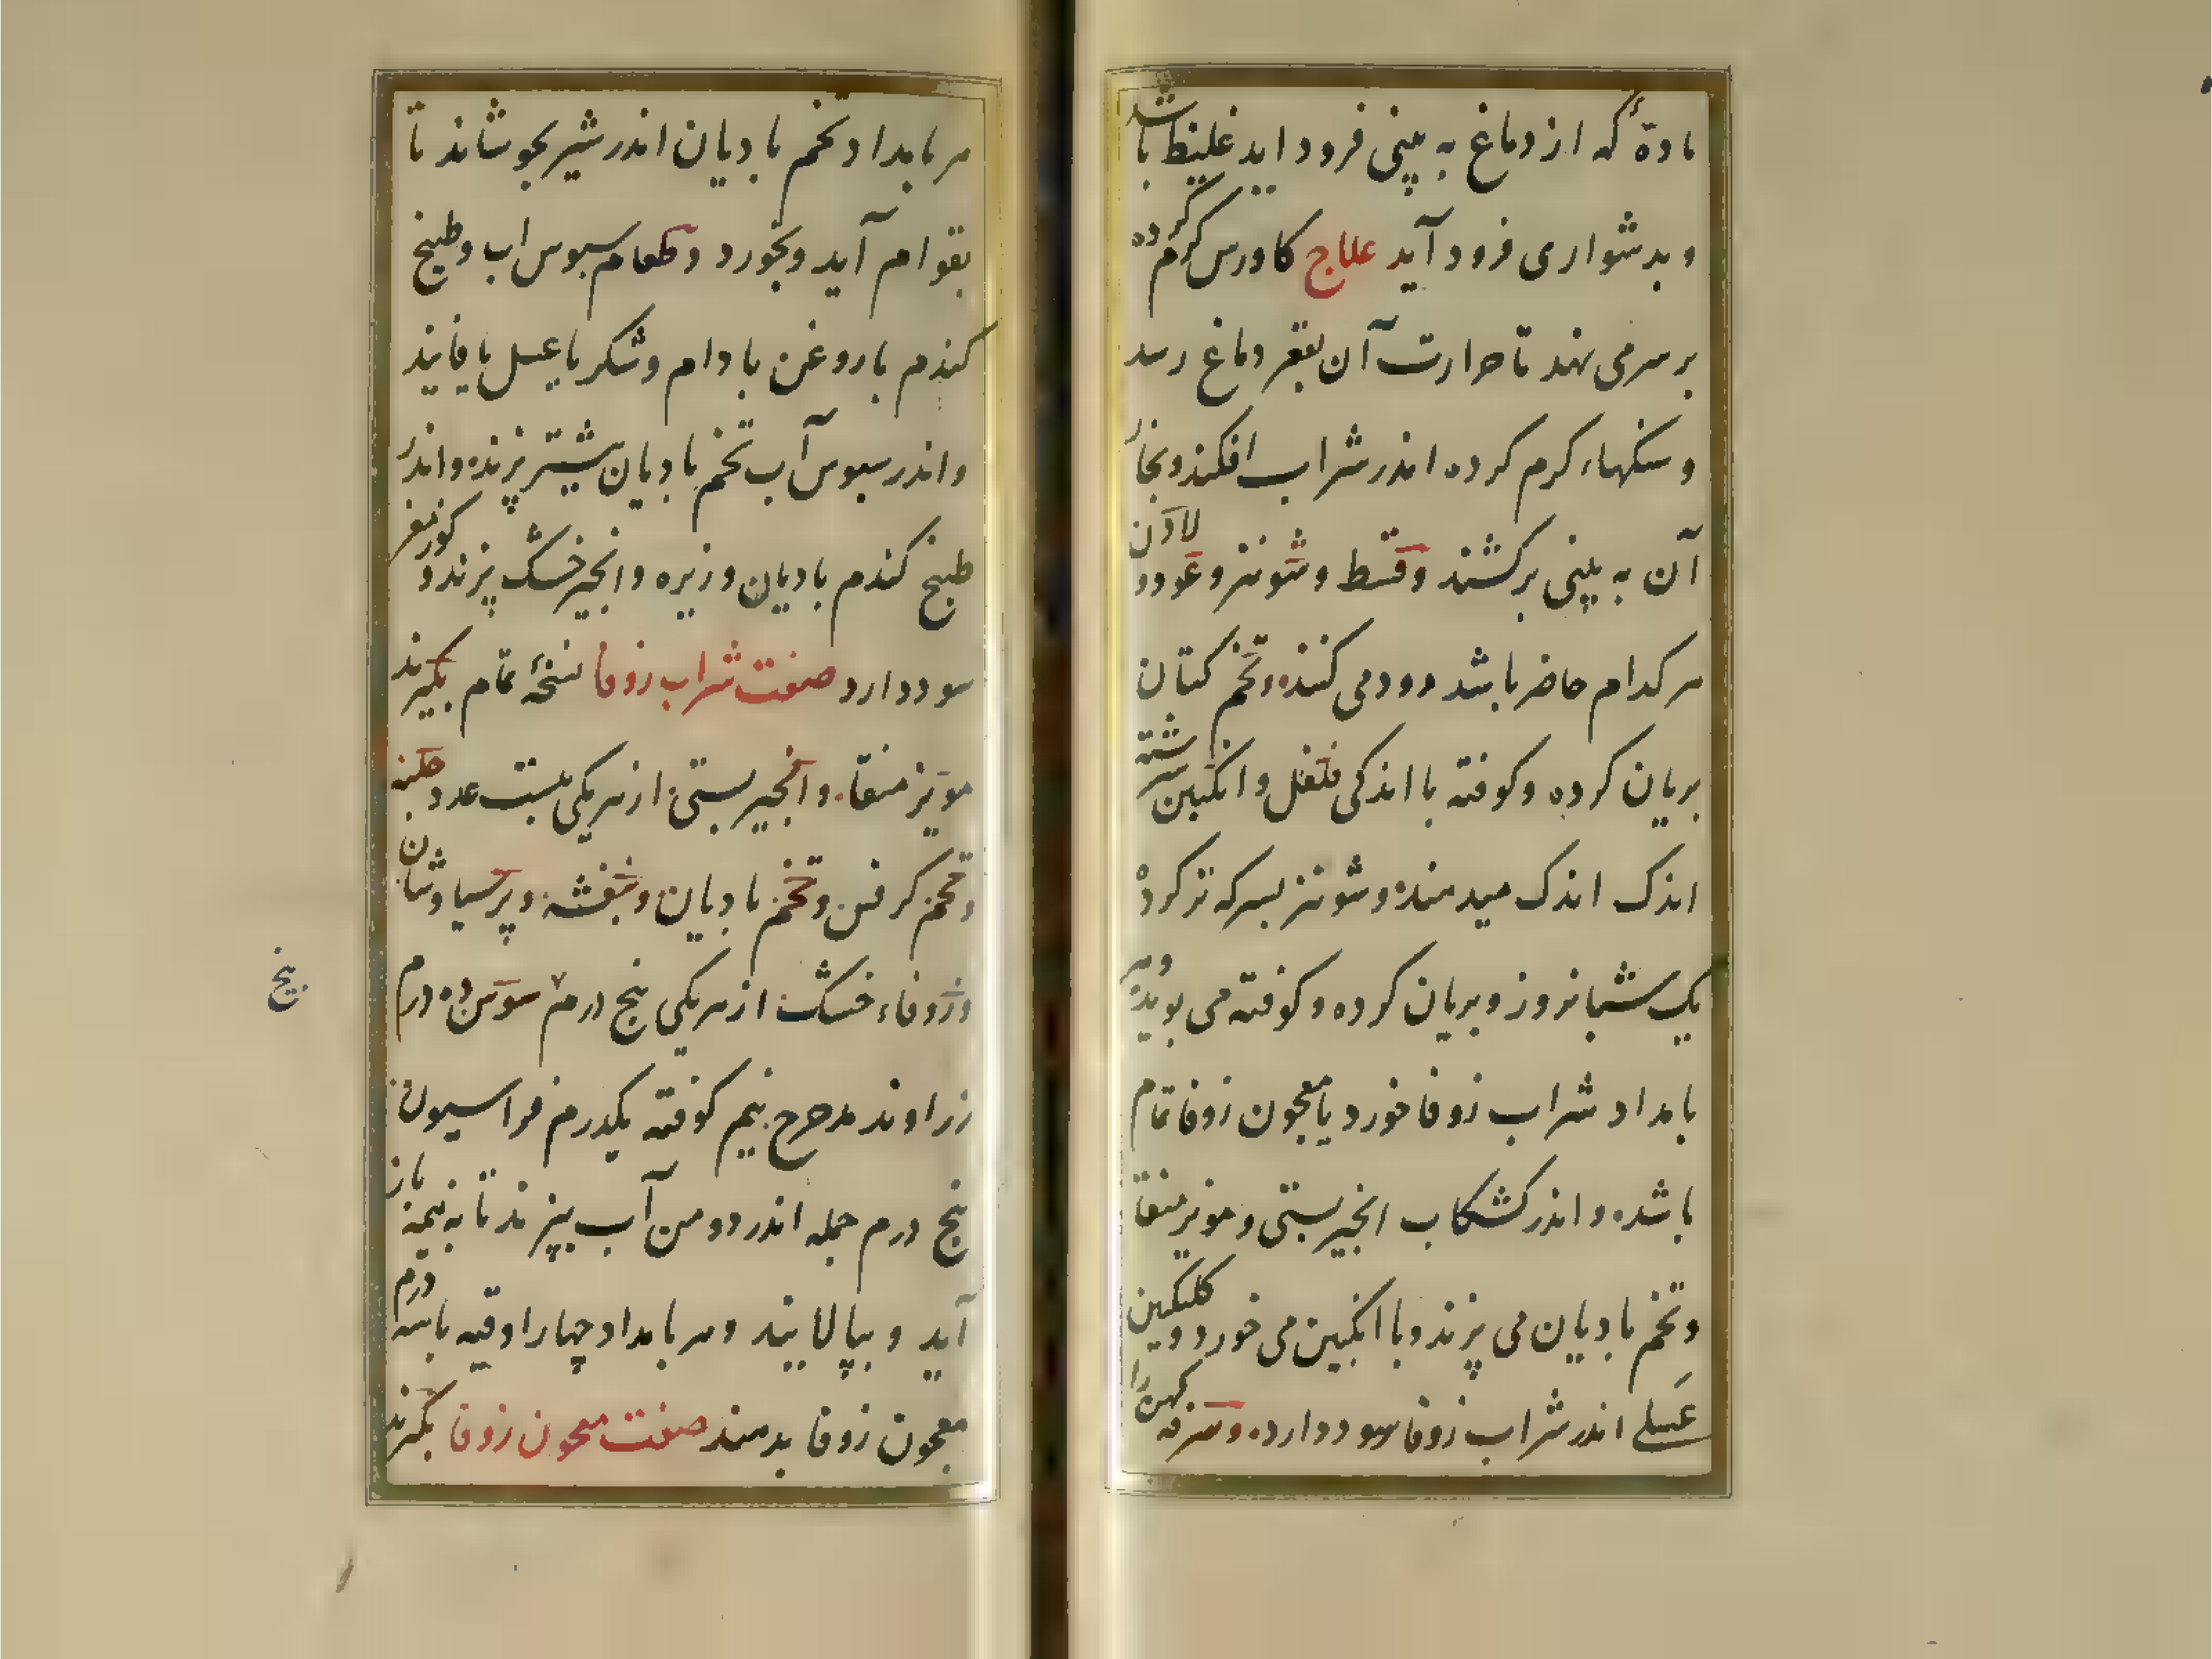 مادهٔ که از دماغ به بینی فرود اید غلیظ باشد
و بدشواری فرود آید علاج کاورس کرم کرده
بر سر می نهند تا حرارت آن بقعر دماغ رسد
و سنکهاء کرم کرده اندر شراب افکنند و بخار
آن به بینی برکشند و قسط و شونیز و عود و لادن
هر کدام حاضر باشد دود می کنند و تخم کتان
بریان کرده و کوفته با اندکی فلفل و انکبین سرشته
اندک اندک میدهند و شونیز بسرکه تر کرده
یک شبانروز و بریان کرده و کوفته می بویند و هر
بامداد شراب زوفا خورد یا معجون زوفا تمام
باشد و اندر کشکاب انجیر بستی و مویز منقا
و تخم بادیان می پزند و با انکبین می خورد و کلنکبین
عسلی اندر شراب زوفا سود دارد و سرفه کهن را
هر بامداد تخم بادیان اندر شیر بجوشاند تا
بقوام آید و بخورد و طعام سبوس اب و طبیخ
کندم با روغن بادام و شکر یا عسل یا فانیذ
و اندر سبوس آب تخم بادیان بیشتر پزند و اندر
طبیخ کندم بادیان و زیره و انجیر خشک پزند و کوز مغز
سود دارد صفت شراب زوفا نسخهٔ تمام بکیرند
مویز منقاء و انجیر بستی از هر یکی بیست عدد حلبه
و تخم کرفس و تخم بادیان و بنفشه و پرسیاوشان
و زوفاء خشک از هر یکی پنج درم سوس ده درم
بیخ
زراوند مدحرج نیم کوفته یکدرم فراسیون
پنج درم جمله اندر دو من آب بپزند تا به نیمه باز
آید و بپالایند و هر بامداد چهار اوقیه با سه درم
معجون زوفا بدهند صفت معجون زوفا بکیرند